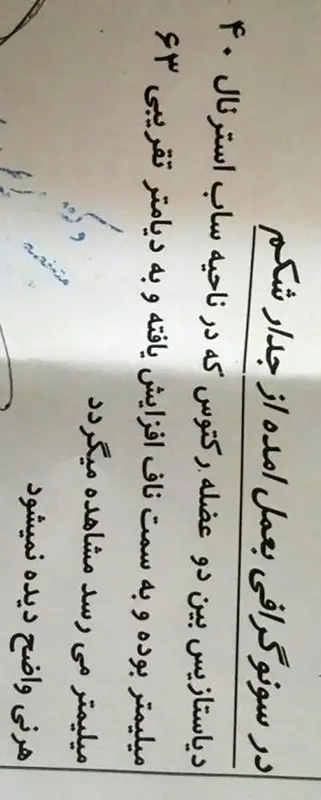 در سونوگرافی بعمل امده از جدار شکم
دیاستازیس بین دو عضله رکتوس که در ناحیه ساب استرنال ۴۰
میلیمتر بوده و به سمت ناف افزایش یافته و به دیامتر تقریبی ۶۳
میلیمتر می رسد مشاهده میگردد
هرنی واضح دیده نمیشود